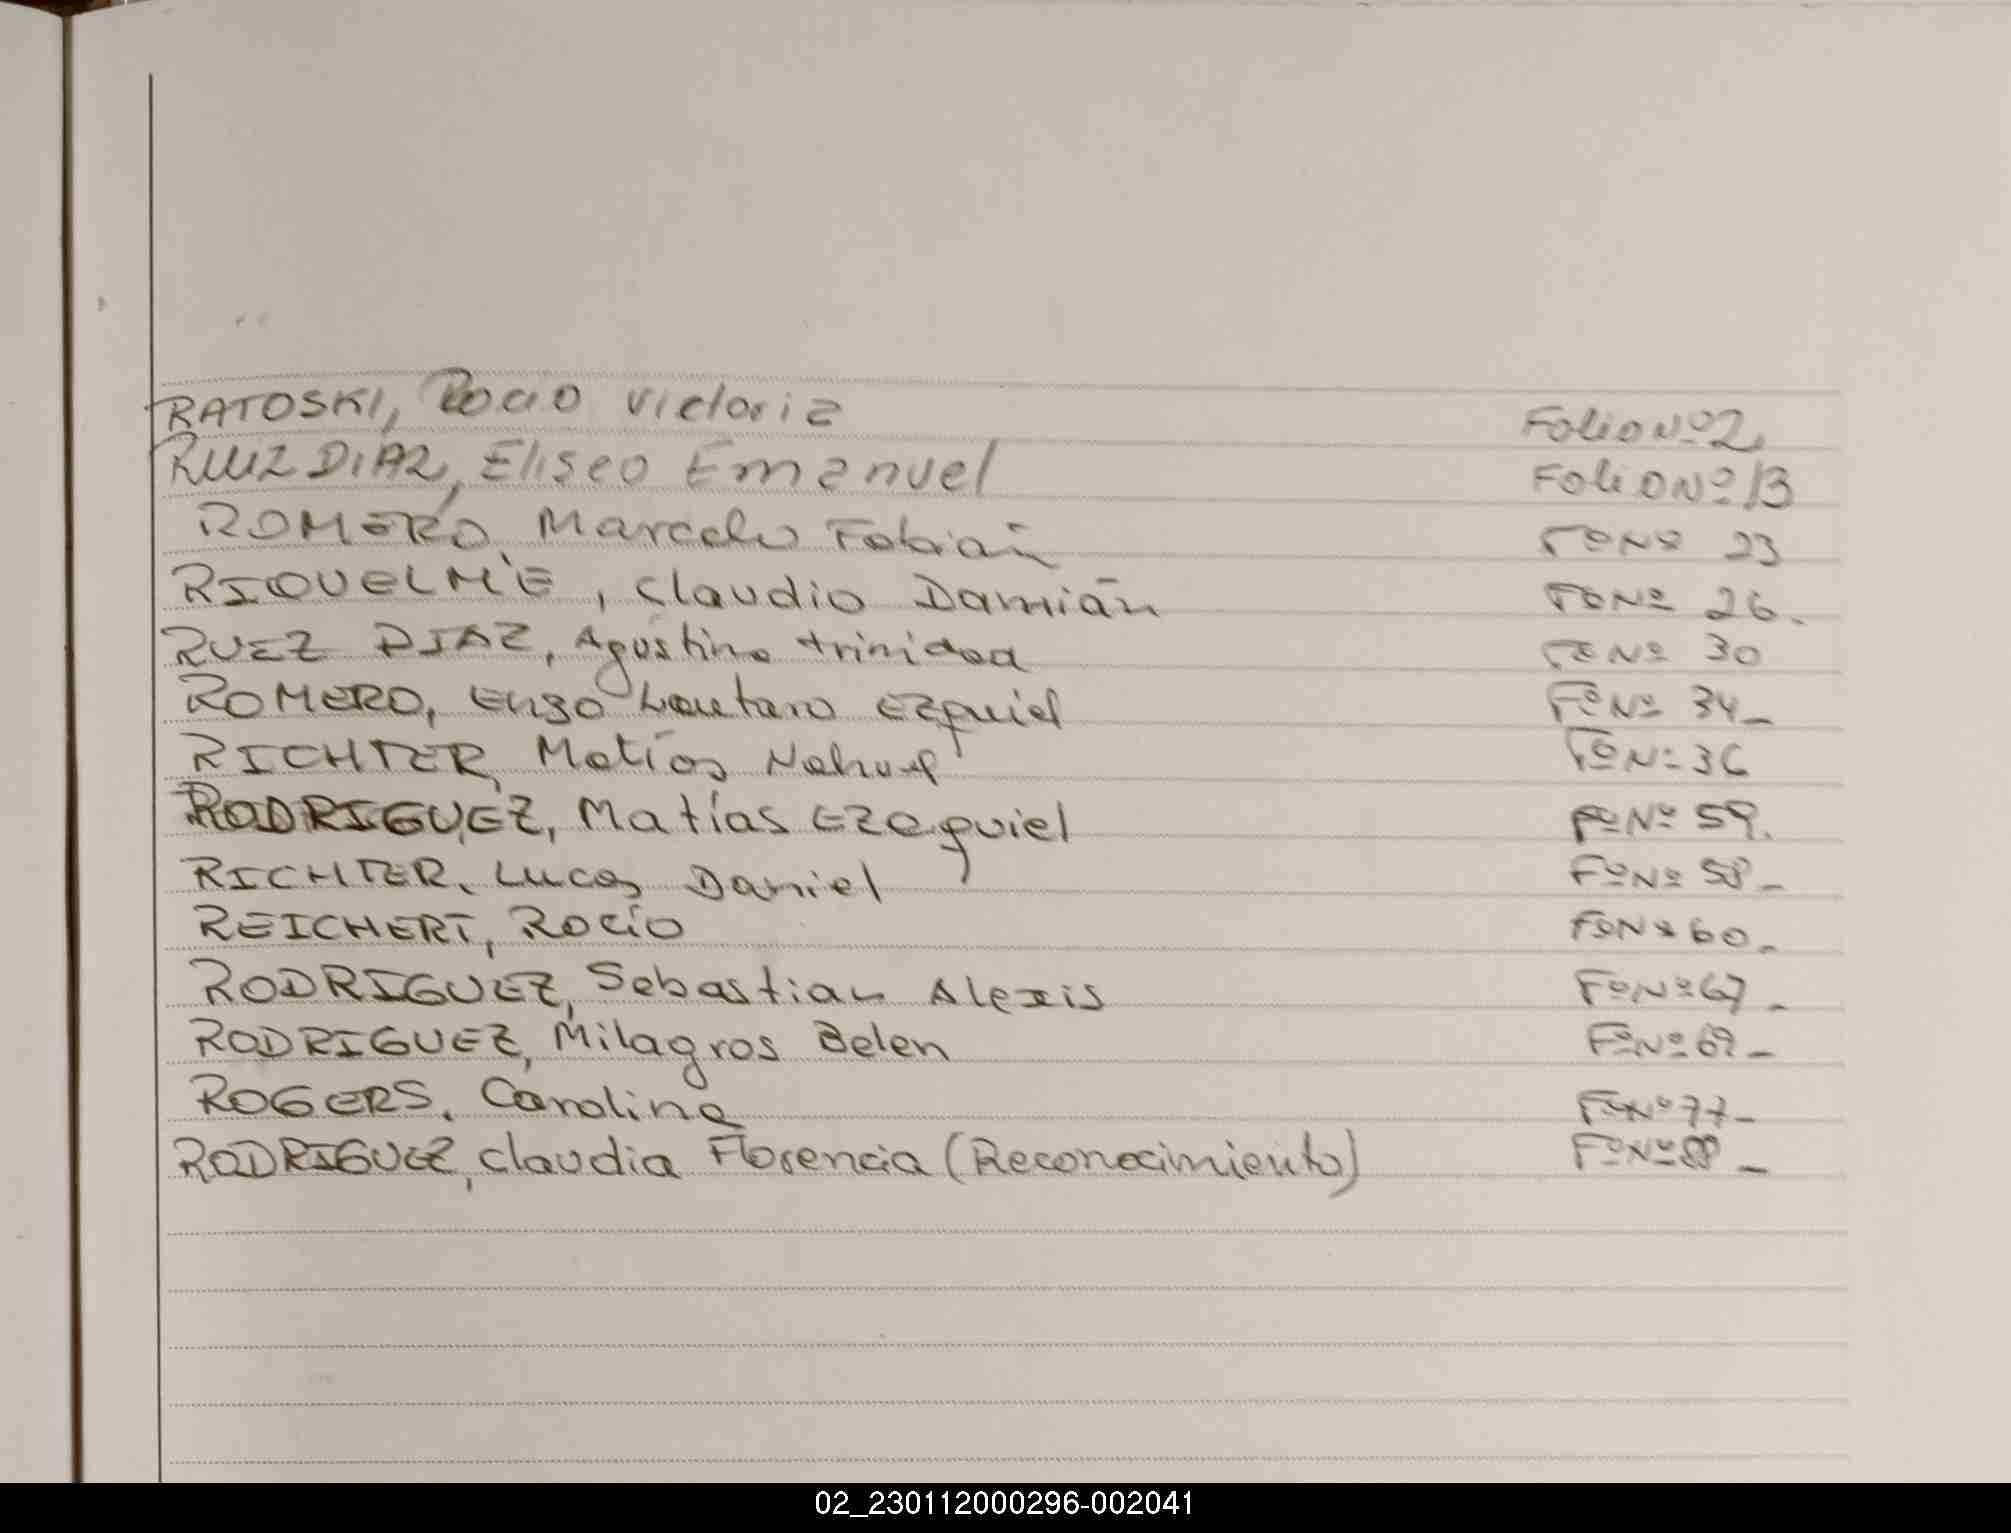 RATOSKI, Rocio victoria Folio Nº 2
RUIZ DIAZ, Eliseo Emanuel Folio Nº 13
ROMERO, Marcelo Fabián Fº Nº 23
RIQUELME, Claudio Damián Fº Nº 26.
RUEZ DIAZ, Agustina trinidad Fº Nº 30
ROMERO, Enzo Lautaro Ezequiel Fº Nº 34_
RICHTER, Matías Nahuel Fº Nº 36
RODRIGUEZ, Matías Ezequiel Fº Nº 59.
RICHTER, Lucas Daniel Fº Nº 58_
REICHERT, Rocío Fº Nº 60_
RODRIGUEZ, Sebastian Alexis Fº Nº 67_
RODRIGUEZ, Milagros Belen Fº Nº 69_
ROGERS, Carolina Fº Nº 77_
RODRIGUEZ, Claudia Florencia (Reconocimiento) Fº Nº 88_
02_230112000296-002041